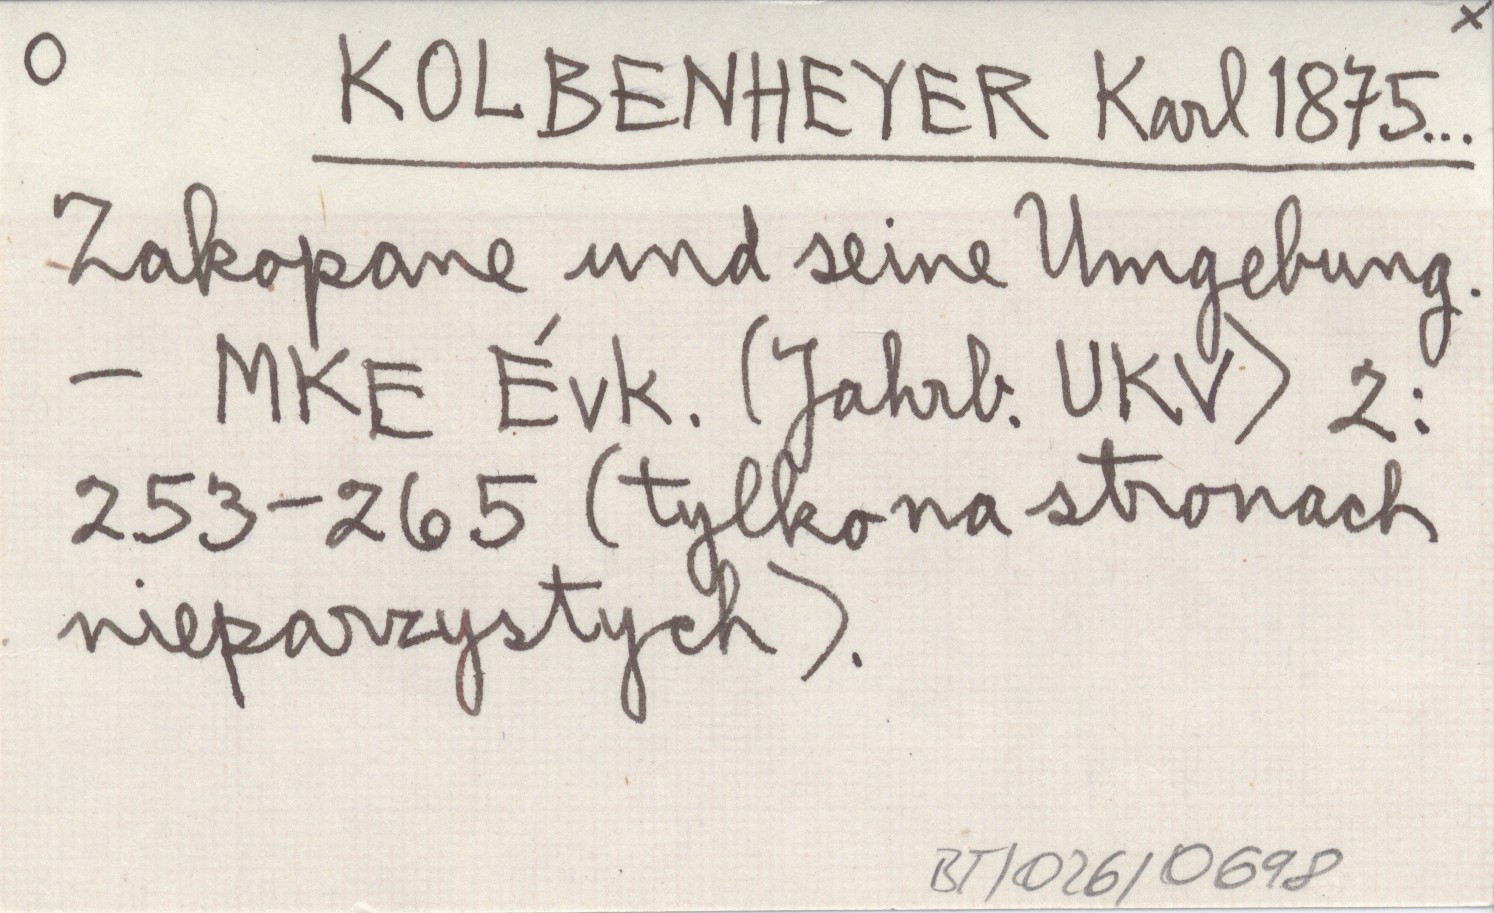 O KOLBENHEYER Karl 1875... x
Zakopane und seine Umgebung.
– MKE Évk. (Jahrb. UKV) 2:
253–265 (tylko na stronach
nieparzystych).
BT/026/0698